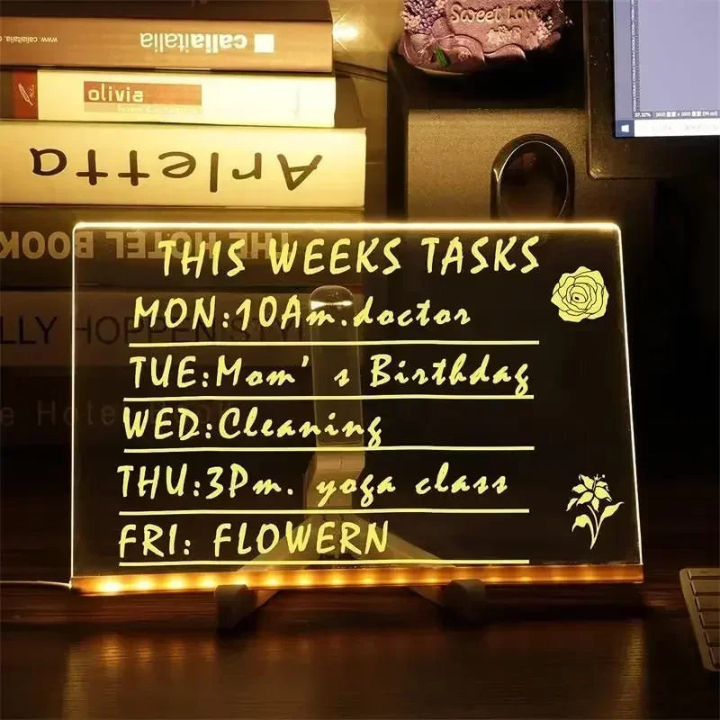 www.
callaitalia
olivia
Arletta
THE HOTEL BOOK
THIS WEEKS TASKS
MON:10Am.doctor
TUE:Mom's Birthday
WED:Cleaning
THU:3Pm. yoga class
FRI: FLOWERN
Sweet Love